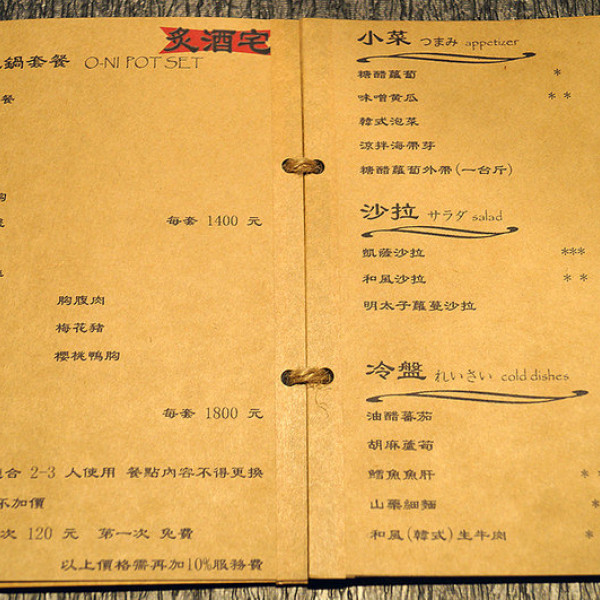 炙酒宅
鍋套餐 O-NI POT SET
餐
每套 1400 元
胸腹肉
梅花豬
櫻桃鴨胸
每套 1800 元
合 2-3 人使用 餐點內容不得更換
不加價
次 120 元 第一次 免費
以上價格需再加10%服務費
小菜 つまみ appetizer
糖醋蘿蔔 *
味噌黄瓜 * *
韓式泡菜
涼拌海帶芽
糖醋蘿蔔外帶(一台斤)
沙拉 サラダ salad
凱薩沙拉 ***
和風沙拉 * *
明太子蘿蔓沙拉
冷盤 れいさい cold dishes
油醋蕃茄
胡麻蘆筍
鱈魚魚肝 *
山藥細麵 *
和風(韓式)生牛肉 *